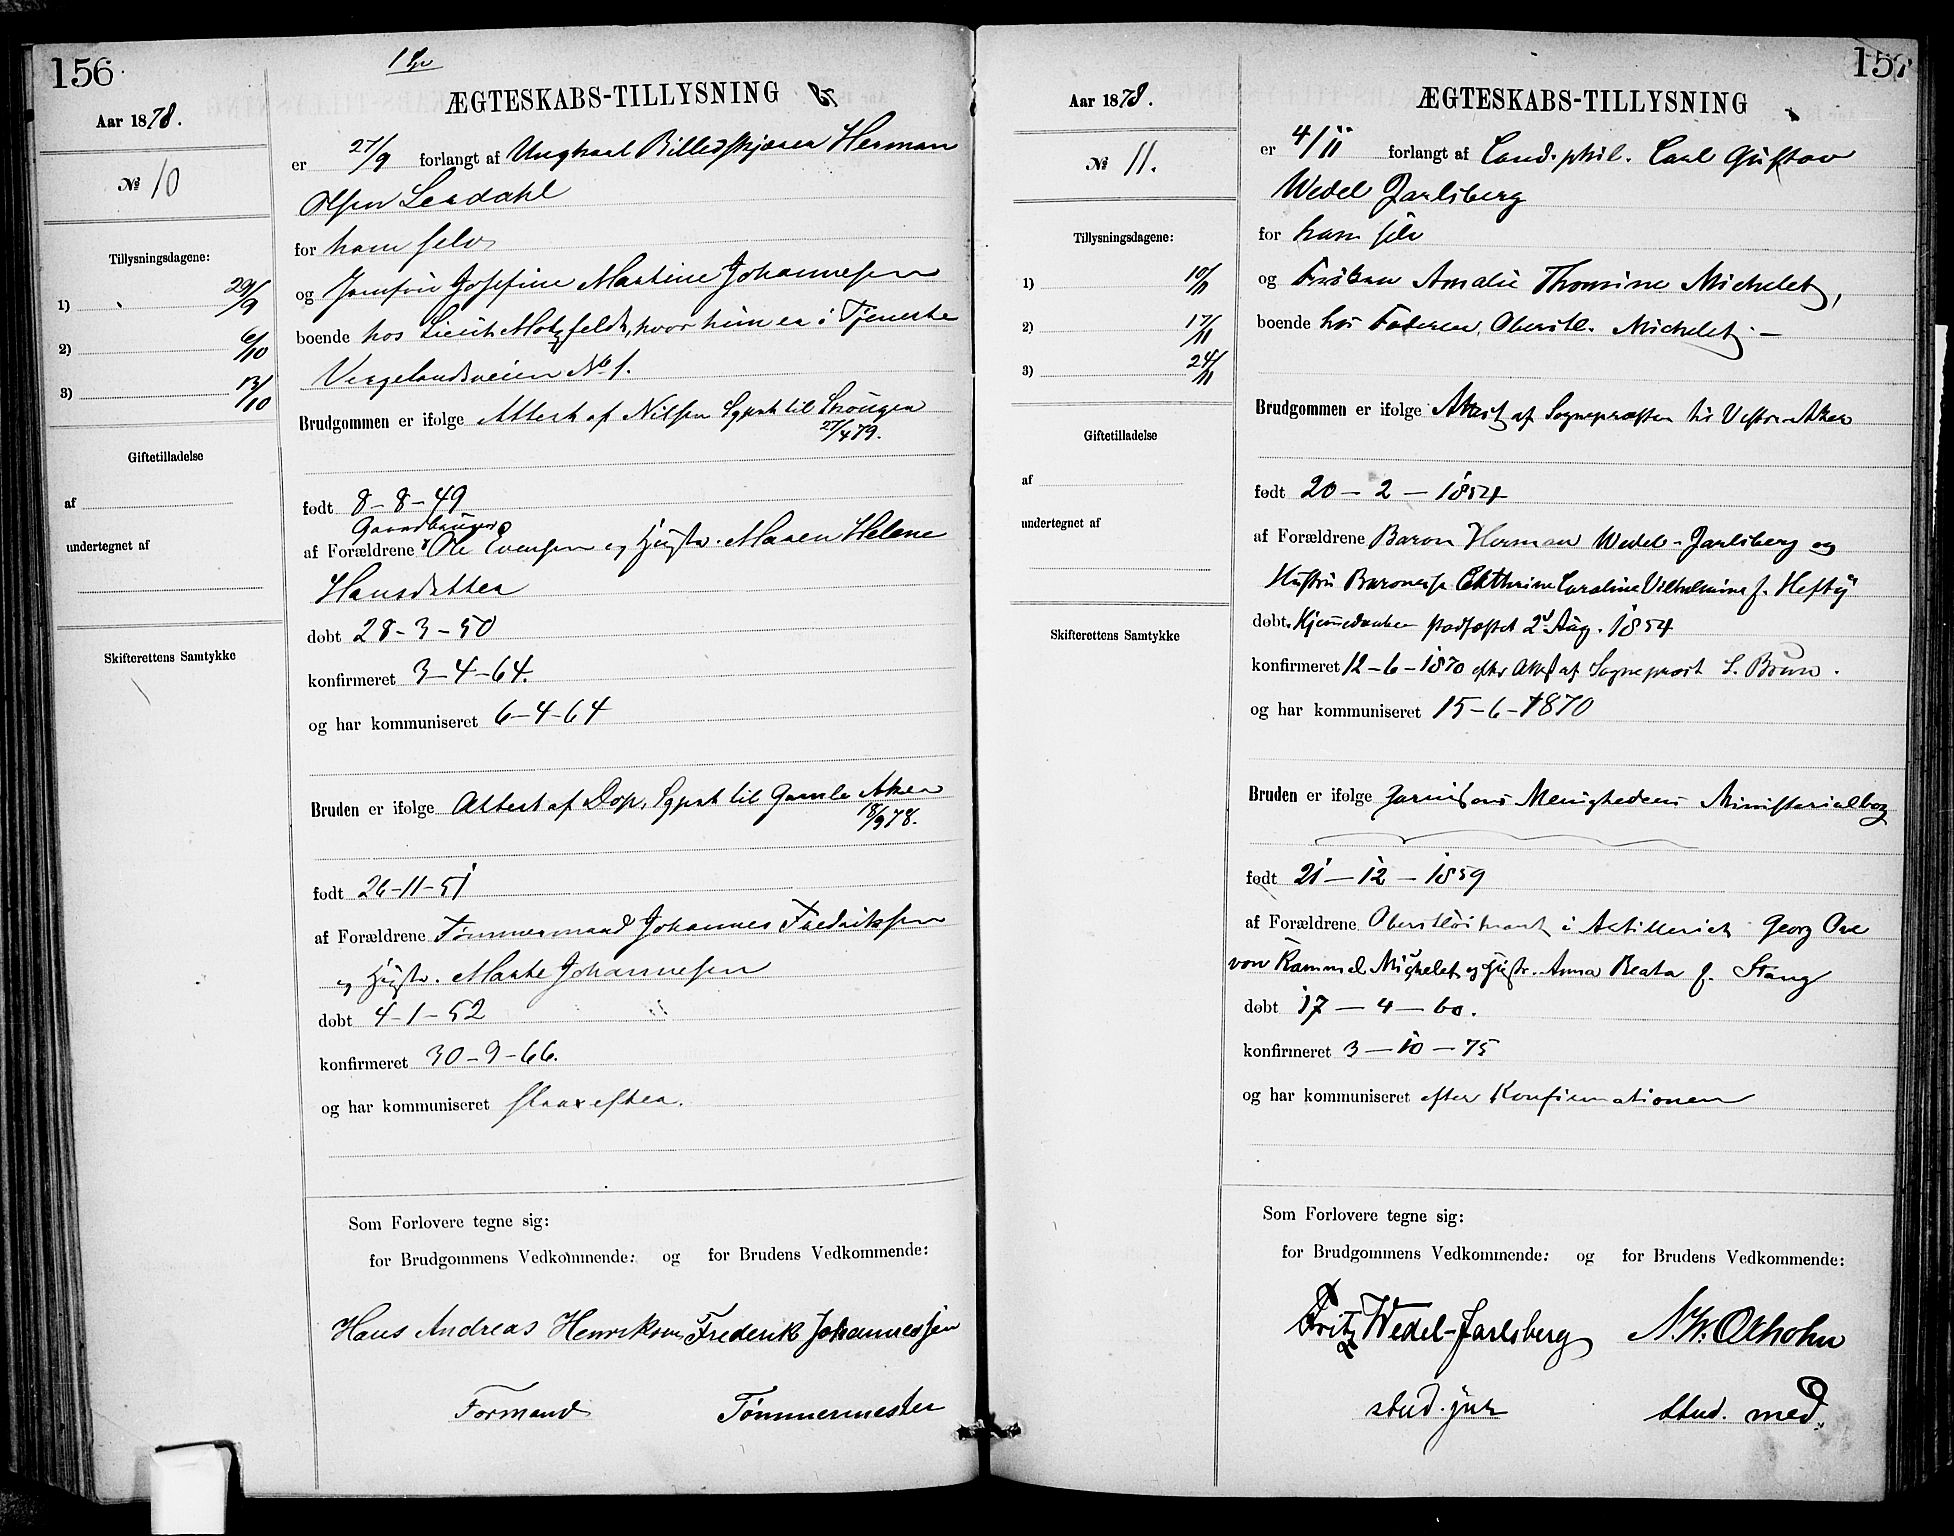 156
1 Sp
Aar 1878.
ÆGTESKABS-TILLYSNING
№ 10
er 27/9 forlangt af Ungkarl Billedskjærer Herman
Olsen Lerdahl
for ham selv
Tillysningsdagene:
1) 29/9
2) 6/10
3) 13/10
og Jomfru Josefine Martine Johannesen
boende hos Lieut. Motzfeldt, hvor hun er i Tjeneste
Vergelandsveien No 1.
Brudgommen er ifølge Attest af Nilsen Sgprst til
27/4 79.
Giftetilladelse
af
undertegnet af
Skifterettens Samtykke
født 8-8-49
Gaardbruger
af Forældrene Ole Evensen og Hustr. Maren Helene
Hansdatter
døbt 28-3-50
konfirmeret 3-4-64.
og har kommuniseret 6-4-64
Bruden er ifølge Attest af Dop, Sgprst til Gamle Aker
18/9 78.
født 26-11-51
af Forældrene Tømmermand Johannes Fredriksen
og Hustr. Marte Johannesen
døbt 4-1-52
konfirmeret 30-9-66.
og har kommuniseret strax efter.
Som Forlovere tegne sig:
for Brudgommens Vedkommende: og for Brudens Vedkommende:
Hans Andreas Henriksen Frederik Johannessen
Formand Tømmermester
157
Aar 1878.
ÆGTESKABS-TILLYSNING
№ 11.
er 4/11 forlangt af Cand. phil. Carl Gustav
Wedel Jarlsberg
for ham selv
Tillysningsdagene:
1) 10/11
2) 17/11
3) 24/11
og Frøken Amalie Thomine Michelet,
boende hos Faderen, Oberstl. Michelet.—
Brudgommen er ifølge Attest af Sognepræsten til Vestre Aker
Giftetilladelse
af
undertegnet af
Skifterettens Samtykke
født 20-2-1854
af Forældrene Baron Herman Wedel-Jarlsberg og
Hustru Baronesse Cathrine Caroline Vilhelmine f. Hefty
døbt Hjemmedaaben stadfæstet 2d Aug. 1854
konfirmeret 12-6-1870 efter Attest af Sogneprest S. Brun.
og har kommuniseret 15-6-1870
Bruden er ifølge Garnisons Menighedens Ministerialbog
født 21-12-1859
af Forældrene Oberstløitnant i Artilleriet Georg Ove
von Rammel Michelet og Hustr. Anna Beata f. Stang
døbt 17-4-60.
konfirmeret 3-10-75
og har kommuniseret efter Konfirmationen
Som Forlovere tegne sig:
for Brudgommens Vedkommende: og for Brudens Vedkommende:
Fritz Wedel-Jarlsberg
stud. jur stud. med.